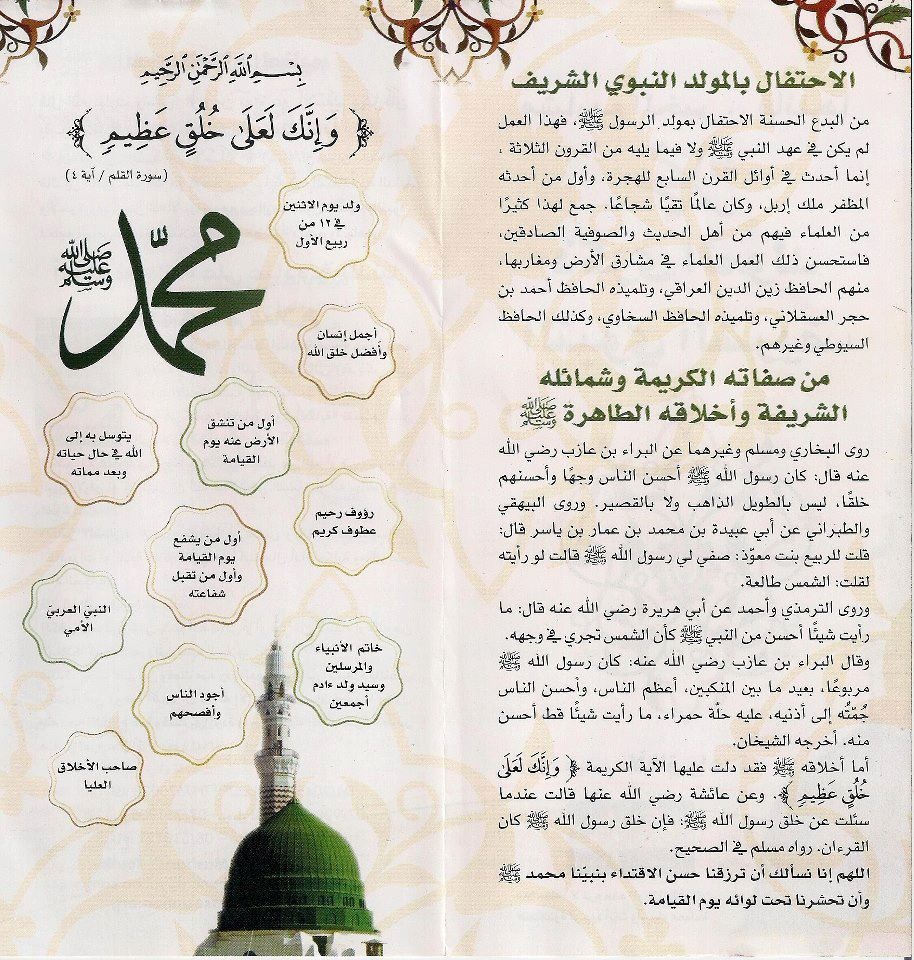 الاحتفال بالمولد النبوي الشريف
من البدع الحسنة الاحتفال بمولد الرسول ﷺ، فهذا العمل
لم يكن في عهد النبي ﷺ ولا فيما يليه من القرون الثلاثة ،
إنما أحدث في أوائل القرن السابع للهجرة. وأول من أحدثه
المظفر ملك إربل، وكان عالمًا تقيًا شجاعًا. جمع لهذا كثيرًا
من العلماء فيهم من أهل الحديث والصوفية الصادقين،
فاستحسن ذلك العمل العلماء في مشارق الأرض ومغاربها،
منهم الحافظ زين الدين العراقي، وتلميذه الحافظ أحمد بن
حجر العسقلاني، وتلميذه الحافظ السخاوي، وكذلك الحافظ
السيوطي وغيرهم.
من صفاته الكريمة وشمائله
الشريفة وأخلاقه الطاهرة ﷺ
روى البخاري ومسلم وغيرهما عن البراء بن عازب رضي الله
عنه قال: كان رسول الله ﷺ أحسن الناس وجهًا وأحسنهم
خلقًا، ليس بالطويل الذاهب ولا بالقصير. وروى البيهقي
والطبراني عن أبي عبيدة بن محمد بن عمار بن ياسر قال:
قلت للربيع بنت معوّذ: صفي لي رسول الله ﷺ قالت لو رأيته
لقلت: الشمس طالعة.
وروى الترمذي وأحمد عن أبي هريرة رضي الله عنه قال: ما
رأيت شيئًا أحسن من النبي ﷺ كأن الشمس تجري في وجهه.
وقال البراء بن عازب رضي الله عنه: كان رسول الله ﷺ
مربوعًا، بعيد ما بين المنكبين، أعظم الناس، وأحسن الناس
جُمّتُه إلى أذنيه، عليه حلّة حمراء، ما رأيت شيئًا قط أحسن
منه. أخرجه الشيخان.
أما أخلاقه ﷺ فقد دلت عليها الآية الكريمة ﴿ وَإِنَّكَ لَعَلَىٰ
خُلُقٍ عَظِيمٍ ﴾. وعن عائشة رضي الله عنها قالت عندما
سئلت عن خلق رسول الله ﷺ: فإن خلق رسول الله ﷺ كان
القرءان. رواه مسلم في الصحيح.
اللهم إنا نسألك أن ترزقنا حسن الاقتداء بنبيّنا محمد ﷺ
وأن تحشرنا تحت لوائه يوم القيامة.
بِسْمِ اللَّهِ الرَّحْمَٰنِ الرَّحِيمِ
﴿ وَإِنَّكَ لَعَلَىٰ خُلُقٍ عَظِيمٍ ﴾
(سورة القلم / آية ٤)
ولد يوم الاثنين
في ١٢ من
ربيع الأول
محمّد ﷺ
أجمل إنسان
وأفضل خلق الله
أول من تنشق
الأرض عنه يوم
القيامة
يتوسل به إلى
الله في حال حياته
وبعد مماته
رؤوف رحيم
عطوف كريم
أول من يشفع
يوم القيامة
وأول من تقبل
شفاعته
النبيّ العربيّ
الأمي
خاتم الأنبياء
والمرسلين
وسيد ولد ءادم
أجمعين
أجود الناس
وأفصحهم
صاحب الأخلاق
العليا